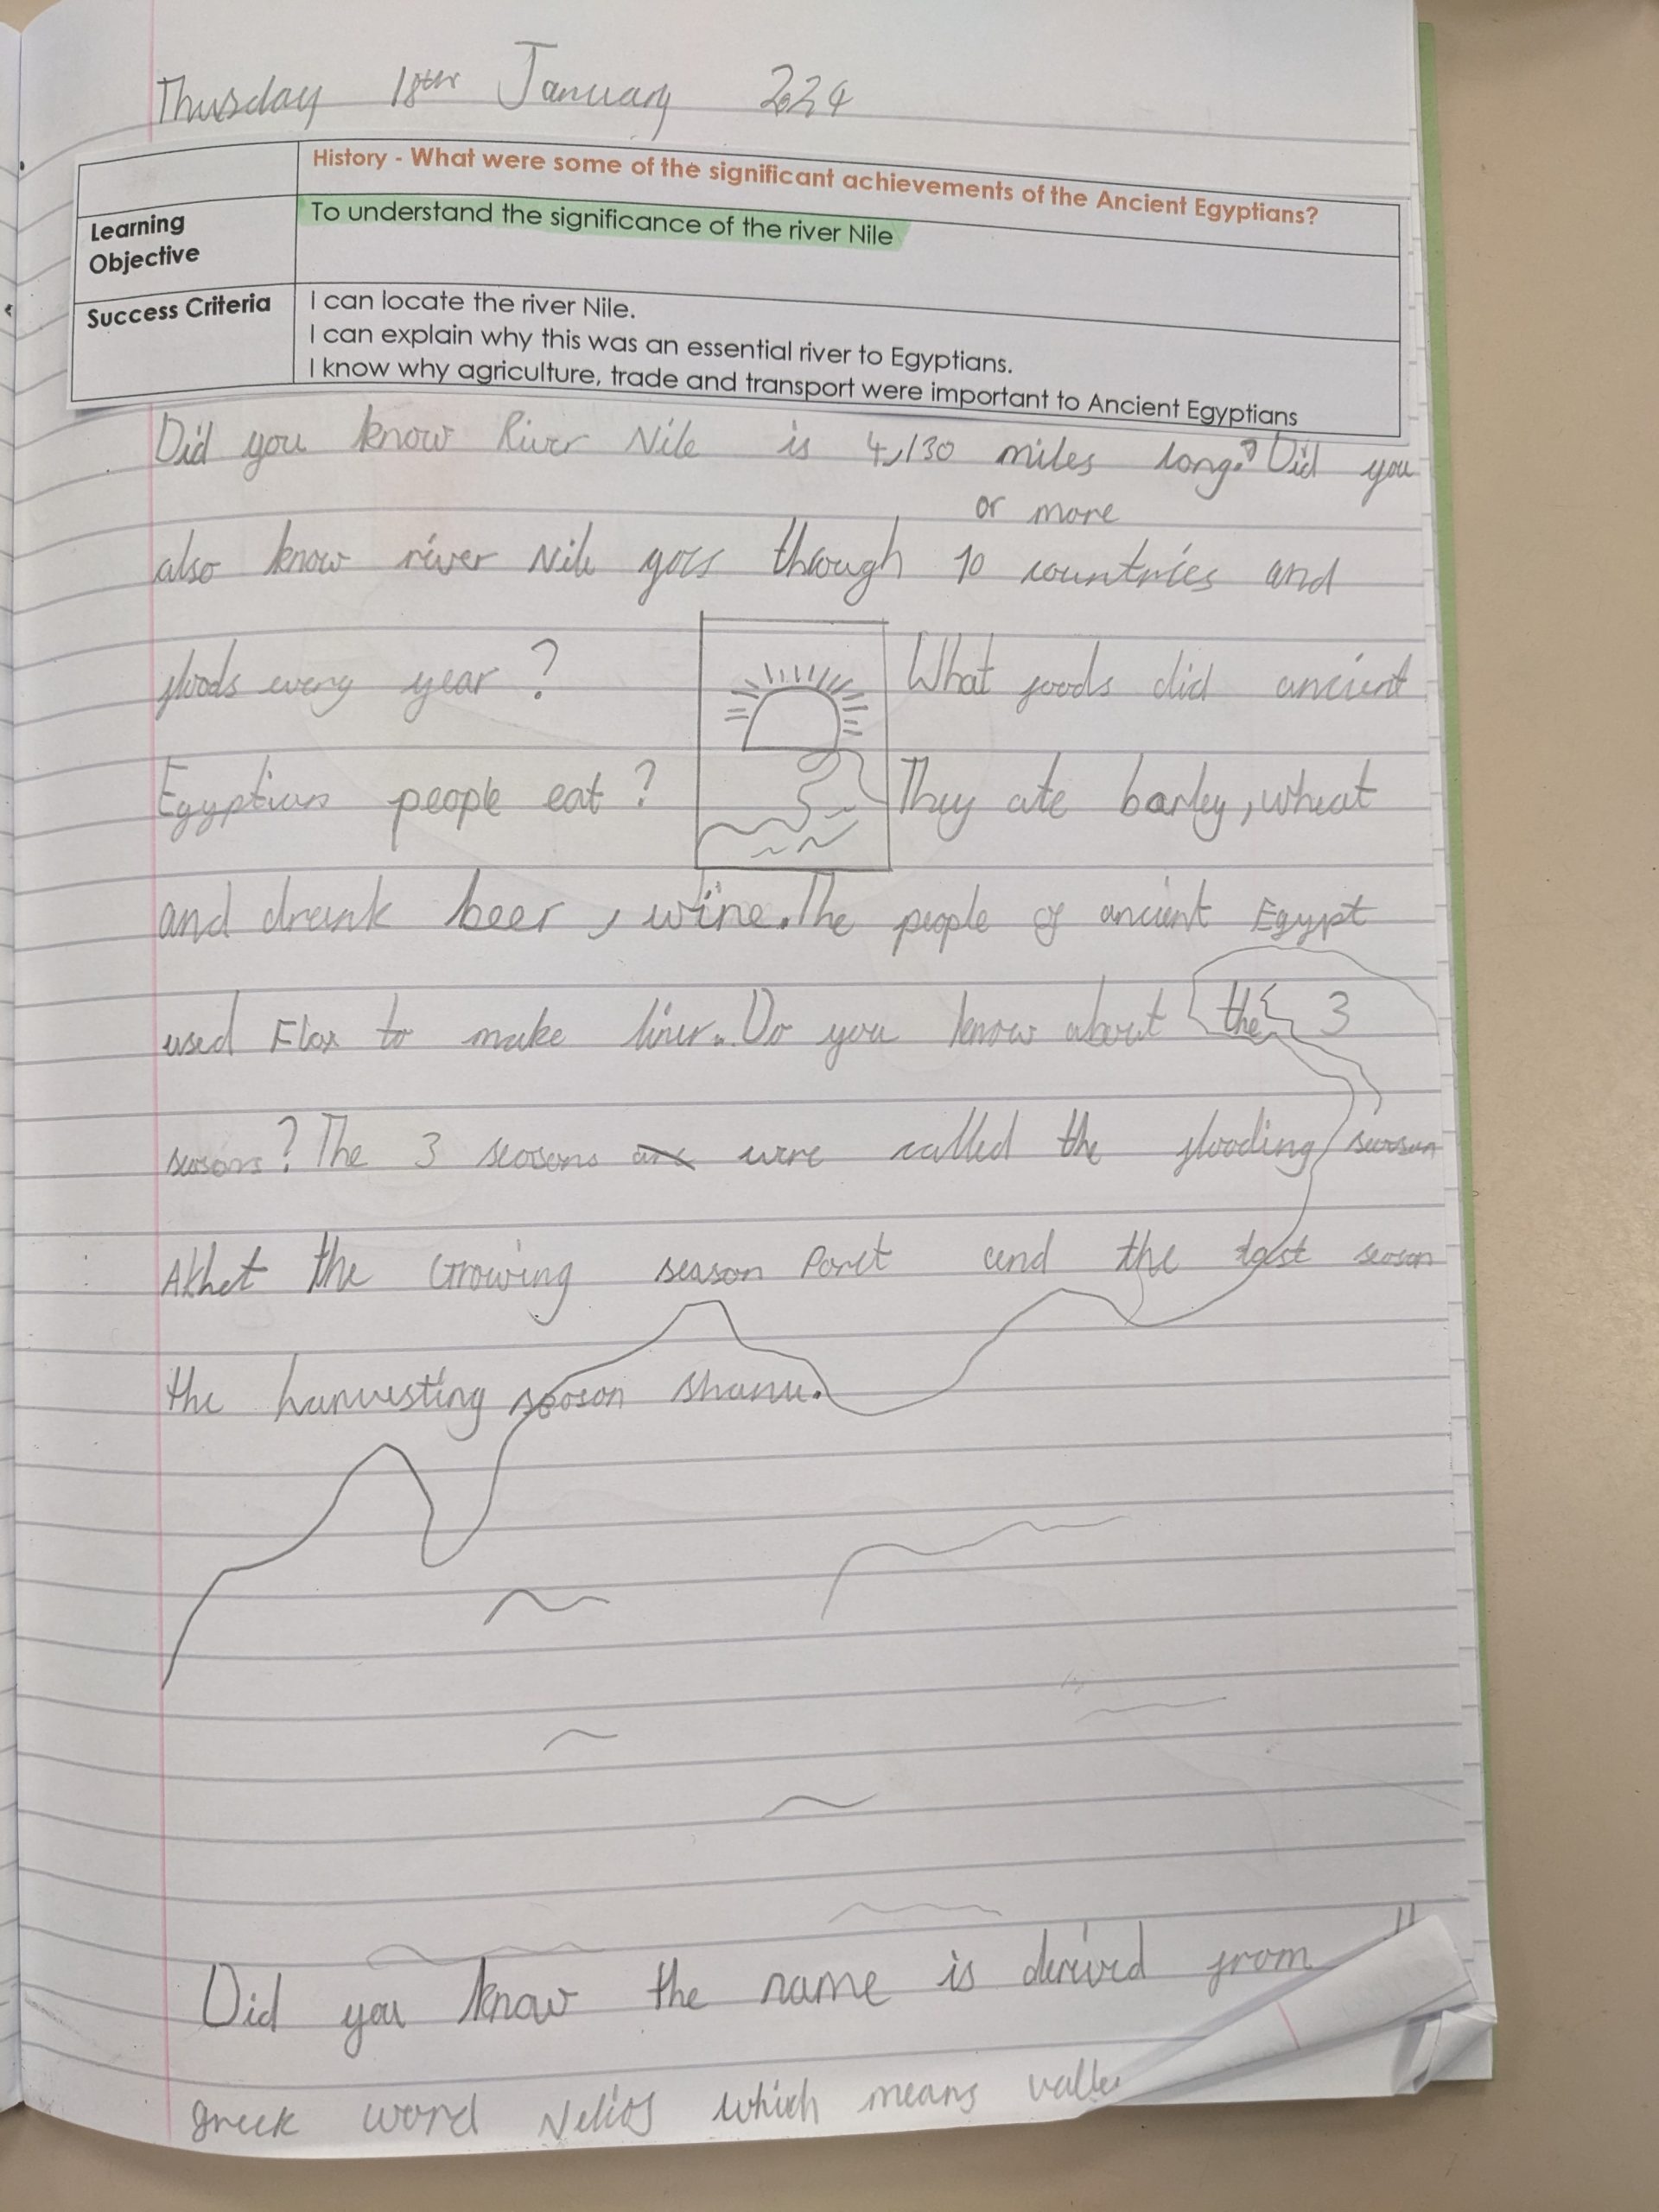 Thursday 18th January 2024
History - What were some of the significant achievements of the Ancient Egyptians?
Learning Objective
To understand the significance of the river Nile
Success Criteria
I can locate the river Nile.
I can explain why this was an essential river to Egyptians.
I know why agriculture, trade and transport were important to Ancient Egyptians
Did you know River Nile is 4,130 miles long? Did you
or more
also know river Nile goes through 10 countries and
floods every year? What foods did ancient
Egyptian people eat? They ate barley, wheat
and drank beer, wine. The people of ancient Egypt
used Flax to make linen. Do you know about the 3
seasons? The 3 seasons are were called the flooding season
Akhet the Growing season Paret and the last season
the harvesting season shamu.
Did you know the name is derived from
greek word Nelios which means